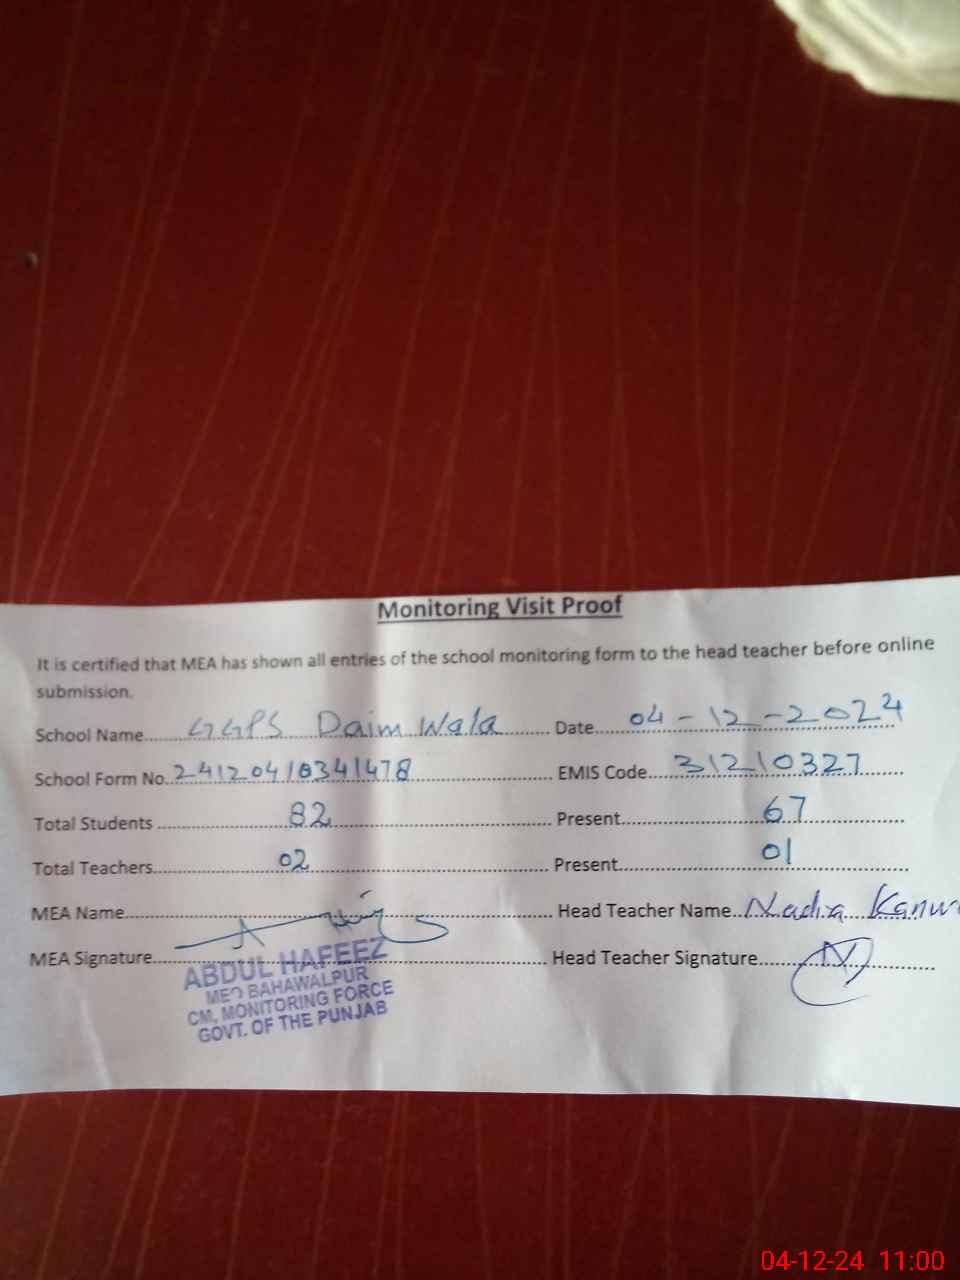 Monitoring Visit Proof
It is certified that MEA has shown all entries of the school monitoring form to the head teacher before online
submission.
School Name..... GGPS Daim Wala ..... Date..... 04-12-2024
School Form No. 24120410341478 ..... EMIS Code..... 31210327
Total Students ..... 82 ..... Present..... 67
Total Teachers..... 02 ..... Present..... 01
MEA Name..... Head Teacher Name.. Nadia Kanw
MEA Signature..... Head Teacher Signature.....
ABDUL HAFEEZ
MEO BAHAWALPUR
CM, MONITORING FORCE
GOVT. OF THE PUNJAB
04-12-24 11:00